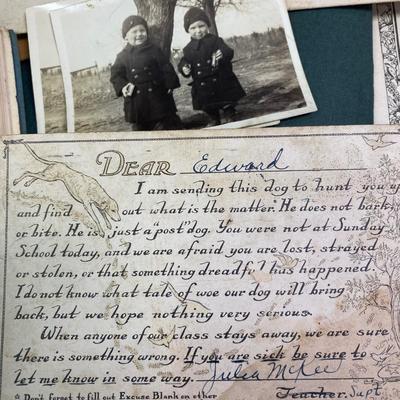 DEAR Edward
I am sending this dog to hunt you u
and find out what is the matter. He does not bark
or bite. He is just a "post" dog. You were not at Sunday
School today, and we are afraid you are lost, strayed
or stolen, or that something dreadful has happened.
I do not know what tale of woe our dog will bring
back, but we hope nothing very serious.
When anyone of our class stays away, we are sure
there is something wrong. If you are sick be sure to
let me know in some way. Julia McKee
* Don't forget to fill out Excuse Blank on other Teacher. Supt